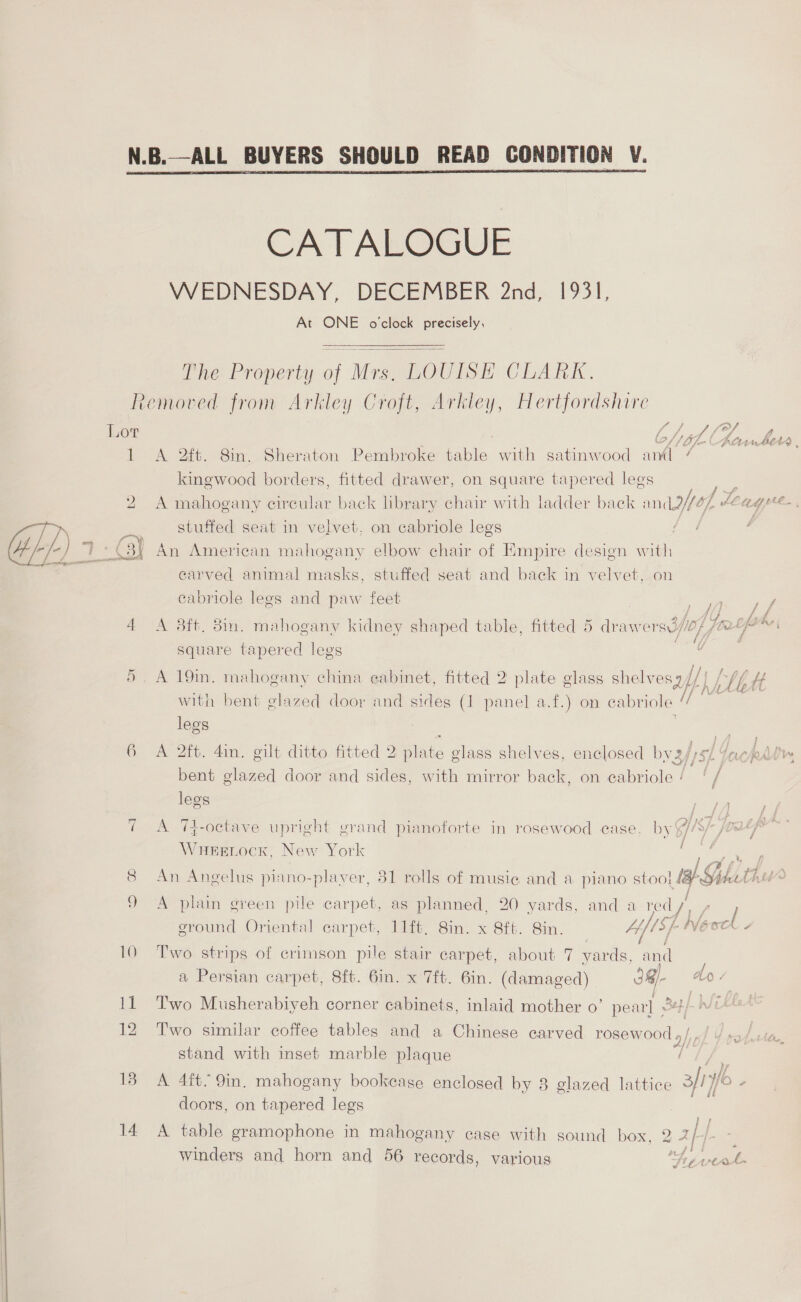 N.B.—ALL BUYERS SHOULD READ CONDITION V.
CATALOGUE
WEDNESDAY, DECEMBER 2nd, 1931,
At ONE o'clock precisely,
The Property of Mrs. LOUISE CLARK.
Removed from Arkley Croft, Arkley, Hertfordshire
LOT
1 A 2ft. 8in. Sheraton Pembroke table with satinwood and Chambers
kingwood borders, fitted drawer, on square tapered legs
2 A mahogany circular back library chair with ladder back and League
stuffed seat in velvet, on cabriole legs
3 An American mahogany elbow chair of Empire design with
carved animal masks, stuffed seat and back in velvet, on
cabriole legs and paw feet
4 A 3ft. 3in. mahogany kidney shaped table, fitted 5 drawers
square tapered legs
5 A 19in. mahogany china cabinet, fitted 2 plate glass shelves
with bent glazed door and sides (1 panel a.f.) on cabriole
legs
6 A 2ft. 4in. gilt ditto fitted 2 plate glass shelves, enclosed by Jackson
bent glazed door and sides, with mirror back, on cabriole
legs
7 A 7¼-octave upright grand pianoforte in rosewood case, by
WHEELOCK, New York
8 An Angelus piano-player, 31 rolls of music and a piano stool
9 A plain green pile carpet, as planned, 20 yards, and a red
ground Oriental carpet, 11ft. 8in. x 8ft. 8in.
10 Two strips of crimson pile stair carpet, about 7 yards, and
a Persian carpet, 8ft. 6in. x 7ft. 6in. (damaged) do
11 Two Musherabiyeh corner cabinets, inlaid mother o' pearl
12 Two similar coffee tables and a Chinese carved rosewood
stand with inset marble plaque
13 A 4ft. 9in. mahogany bookcase enclosed by 3 glazed lattice
doors, on tapered legs
14 A table gramophone in mahogany case with sound box, 2
winders and horn and 56 records, various